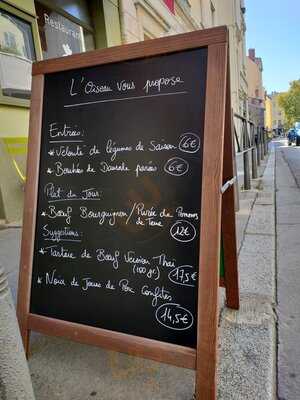 Restau
L'Oiseau Vous propose
Entrées:
* Velouté de légumes de Saison 6€
* Bouchées de Daurade panées 6€
Plat du Jour:
* Bœuf Bourguignon / Purée de Pommes
de Terre 12€
Suggestions
* Tartare de Bœuf Version Thaï
(180 gr) 17,5€
* Noix de Joues de Porc Confites
14,5€